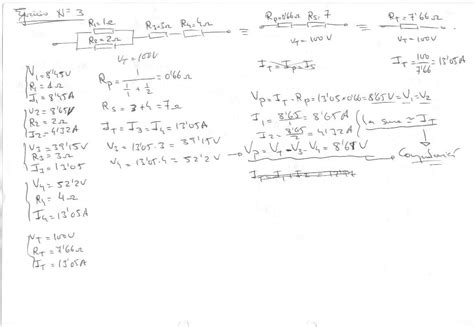 Ejercicio Nº 3
R1=1Ω R2=2Ω R3=3Ω R4=4Ω
VT=100V
Rp=0'66Ω Rs=7
VT=100V
RT=7'66Ω
VT=100V
V1=8'45V
R1=1Ω
I1=8'45A
V2=8'65V
R2=2Ω
I2=4'32A
V3=39'15V
R3=3Ω
I3=13'05
V4=52'2V
R4=4Ω
I4=13'05A
VT=100V
RT=7'66Ω
IT=13'05A
Rp= 1 / (1/1 + 1/2) =0'66Ω
Rs=3+4=7Ω
IT=I3=I4=13'05A
V3=13'05·3=39'15V
V4=13'05·4=52'2V
IT=Ip=Is
IT=100/7'66=13'05A
Vp=IT·Rp=13'05·0'66=8'65V=V1=V2
I1=8'65/1=8'65A
I2=8'65/2=4'32A
la suma = IT
Vp=VT-V3-V4=8'65V
Comprobación